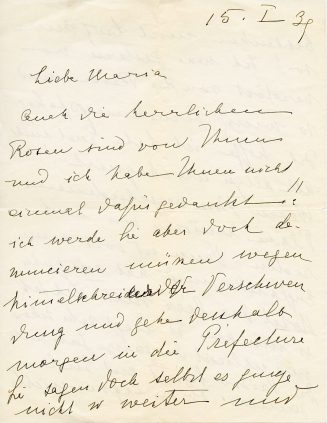 15. I 39
Liebe Maria
Auch die herrlichen
Rosen sind von Ihnen
und ich habe Ihnen nicht
einmal dafür gedankt!!
ich werde Sie aber doch de-
nuncieren müssen wegen
himelschreiender Verschwen
dung und gehe deshalb
morgen in die Prefecture
Sie sagen doch selbst es ginge
nicht so weiter und